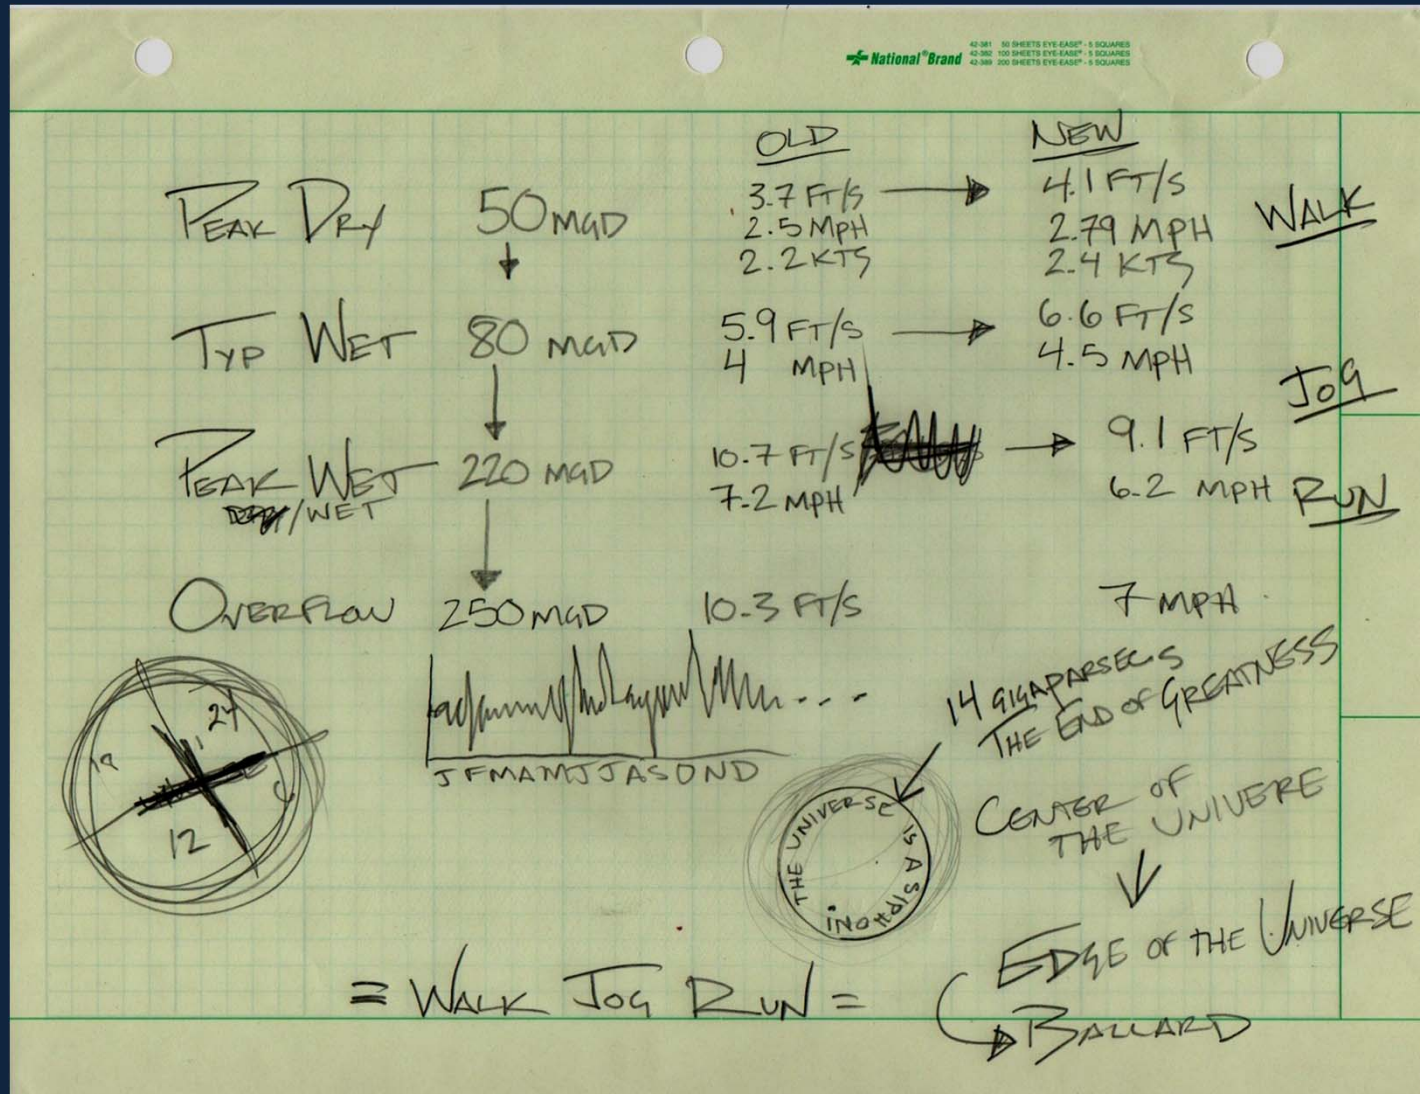 National® Brand
42-381 50 SHEETS EYE-EASE® - 5 SQUARES
42-382 100 SHEETS EYE-EASE® - 5 SQUARES
42-389 200 SHEETS EYE-EASE® - 5 SQUARES
OLD NEW
PEAK DRY 50 MGD 3.7 FT/S 4.1 FT/S
2.5 MPH 2.79 MPH WALK
2.2 KTS 2.4 KTS
TYP WET 80 MGD 5.9 FT/S 6.6 FT/S
4 MPH 4.5 MPH
JOG
PEAK WET 220 MGD 10.7 FT/S 9.1 FT/S
/WET 7.2 MPH 6.2 MPH RUN
OVERFLOW 250 MGD 10.3 FT/S 7 MPH
24
12
J F M A M J J A S O N D
14 GIGAPARSECS
THE END OF GREATNESS
THE UNIVERSE IS A SIPHON!
CENTER OF
THE UNIVERE
EDGE OF THE UNIVERSE
BALLARD
= WALK JOG RUN =